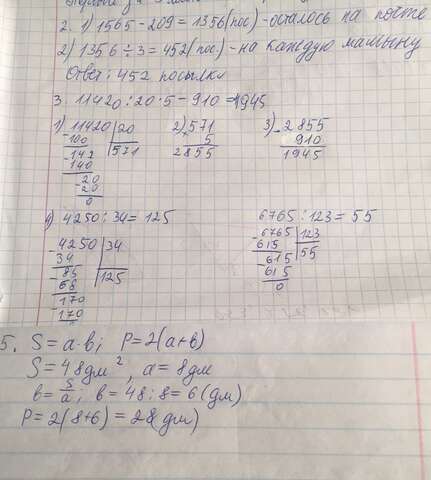 2. 1) 1565 - 209 = 1356 (пос) - осталось на почте
2) 1356 ÷ 3 = 452 (пос) - на каждую машину
Ответ: 452 посылки
3. 11420 : 20 · 5 - 910 = 1945
1) 11420 | 20
-100 | 571
-142
140
-20
-20
0
2) 571
5
2855
3) -2855
910
1945
4) 4250 : 34 = 125
-4250 | 34
34 | 125
-85
68
-170
-170
6765 : 123 = 55
-6765 | 123
615 | 55
-615
-615
0
5. S = a·b; P = 2(a+b)
S = 48 дм², a = 8 дм
b = S/a; b = 48 : 8 = 6 (дм)
P = 2(8+6) = 28 (дм)